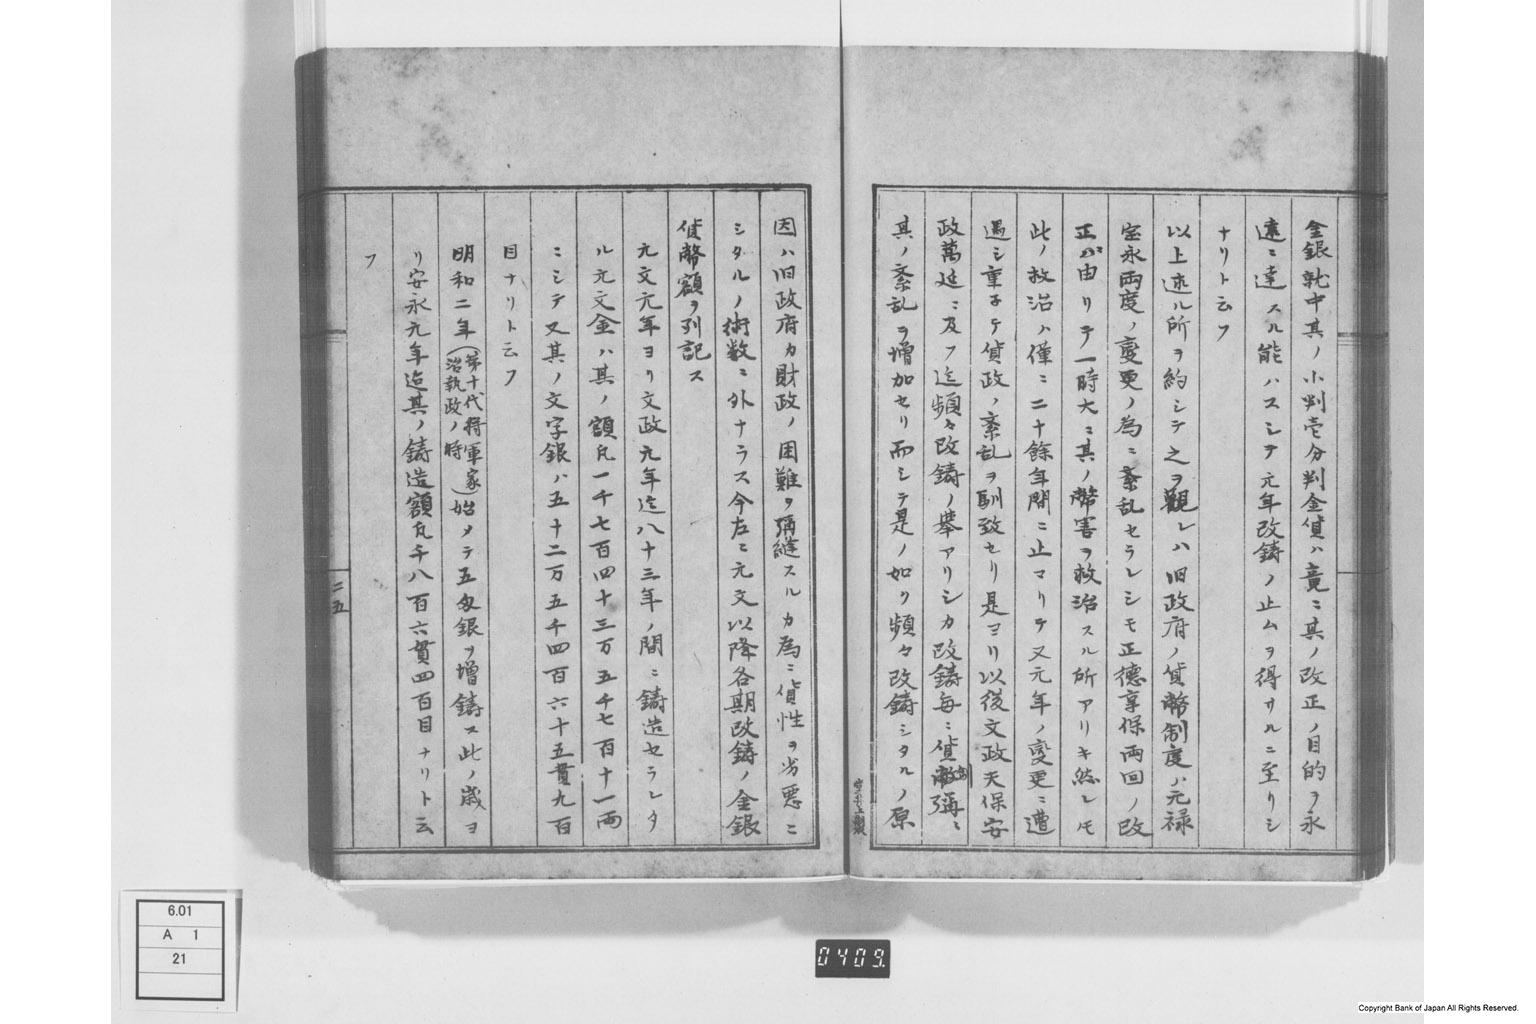 金銀就中其ノ小判壱分判金貨ハ竟ニ其ノ改正ノ目的ヲ永
遠ニ達スル能ハスシテ元年改鋳ノ止ムヲ得サルニ至リシ
ナリト云フ
以上述ル所ヲ約シテ之ヲ観レハ旧政府ノ貨幣制度ハ元禄
宝永両度ノ変更ノ為ニ紊乱セラレシモ正徳享保両回ノ改
正ニ由リテ一時大ニ其ノ幣害ヲ救治スル所アリキ然レモ
此ノ救治ハ僅ニ二十餘年間ニ止マリテ又元年ノ変更ニ遭
遇シ重子テ貨政ノ紊乱ヲ馴致セリ是ヨリ以後文政天保安
政萬延ニ及フ迄頻々改鋳ノ挙アリシカ改鋳毎ニ貨幣彌ニ
其ノ紊乱ヲ増加セリ而シテ是ノ如ク頻々改鋳シタルノ原
因ハ旧政府カ財政ノ困難ヲ彌縫スルカ為ニ貨性ヲ劣悪ニ
シタルノ術数ニ外ナラス今左ニ元文以降各期改鋳ノ金銀
貨幣額ヲ列記ス
元文元年ヨリ文政元年迄八十三年ノ間ニ鋳造セラレタ
ル元文金ハ其ノ額凡一千七百四十三万五千七百十一両
ニシテ又其ノ文字銀ハ五十二万五千四百六十五貫九百
目ナリト云フ
明和二年（第十代将軍家治執政ノ時）始メテ五匁銀ヲ増鋳ス此ノ歳ヨ
リ安永元年迄其ノ鋳造額凡千八百六貫四百目ナリト云
フ
二五
0409
6.01
A 1
21
Copyright Bank of Japan All Rights Reserved.